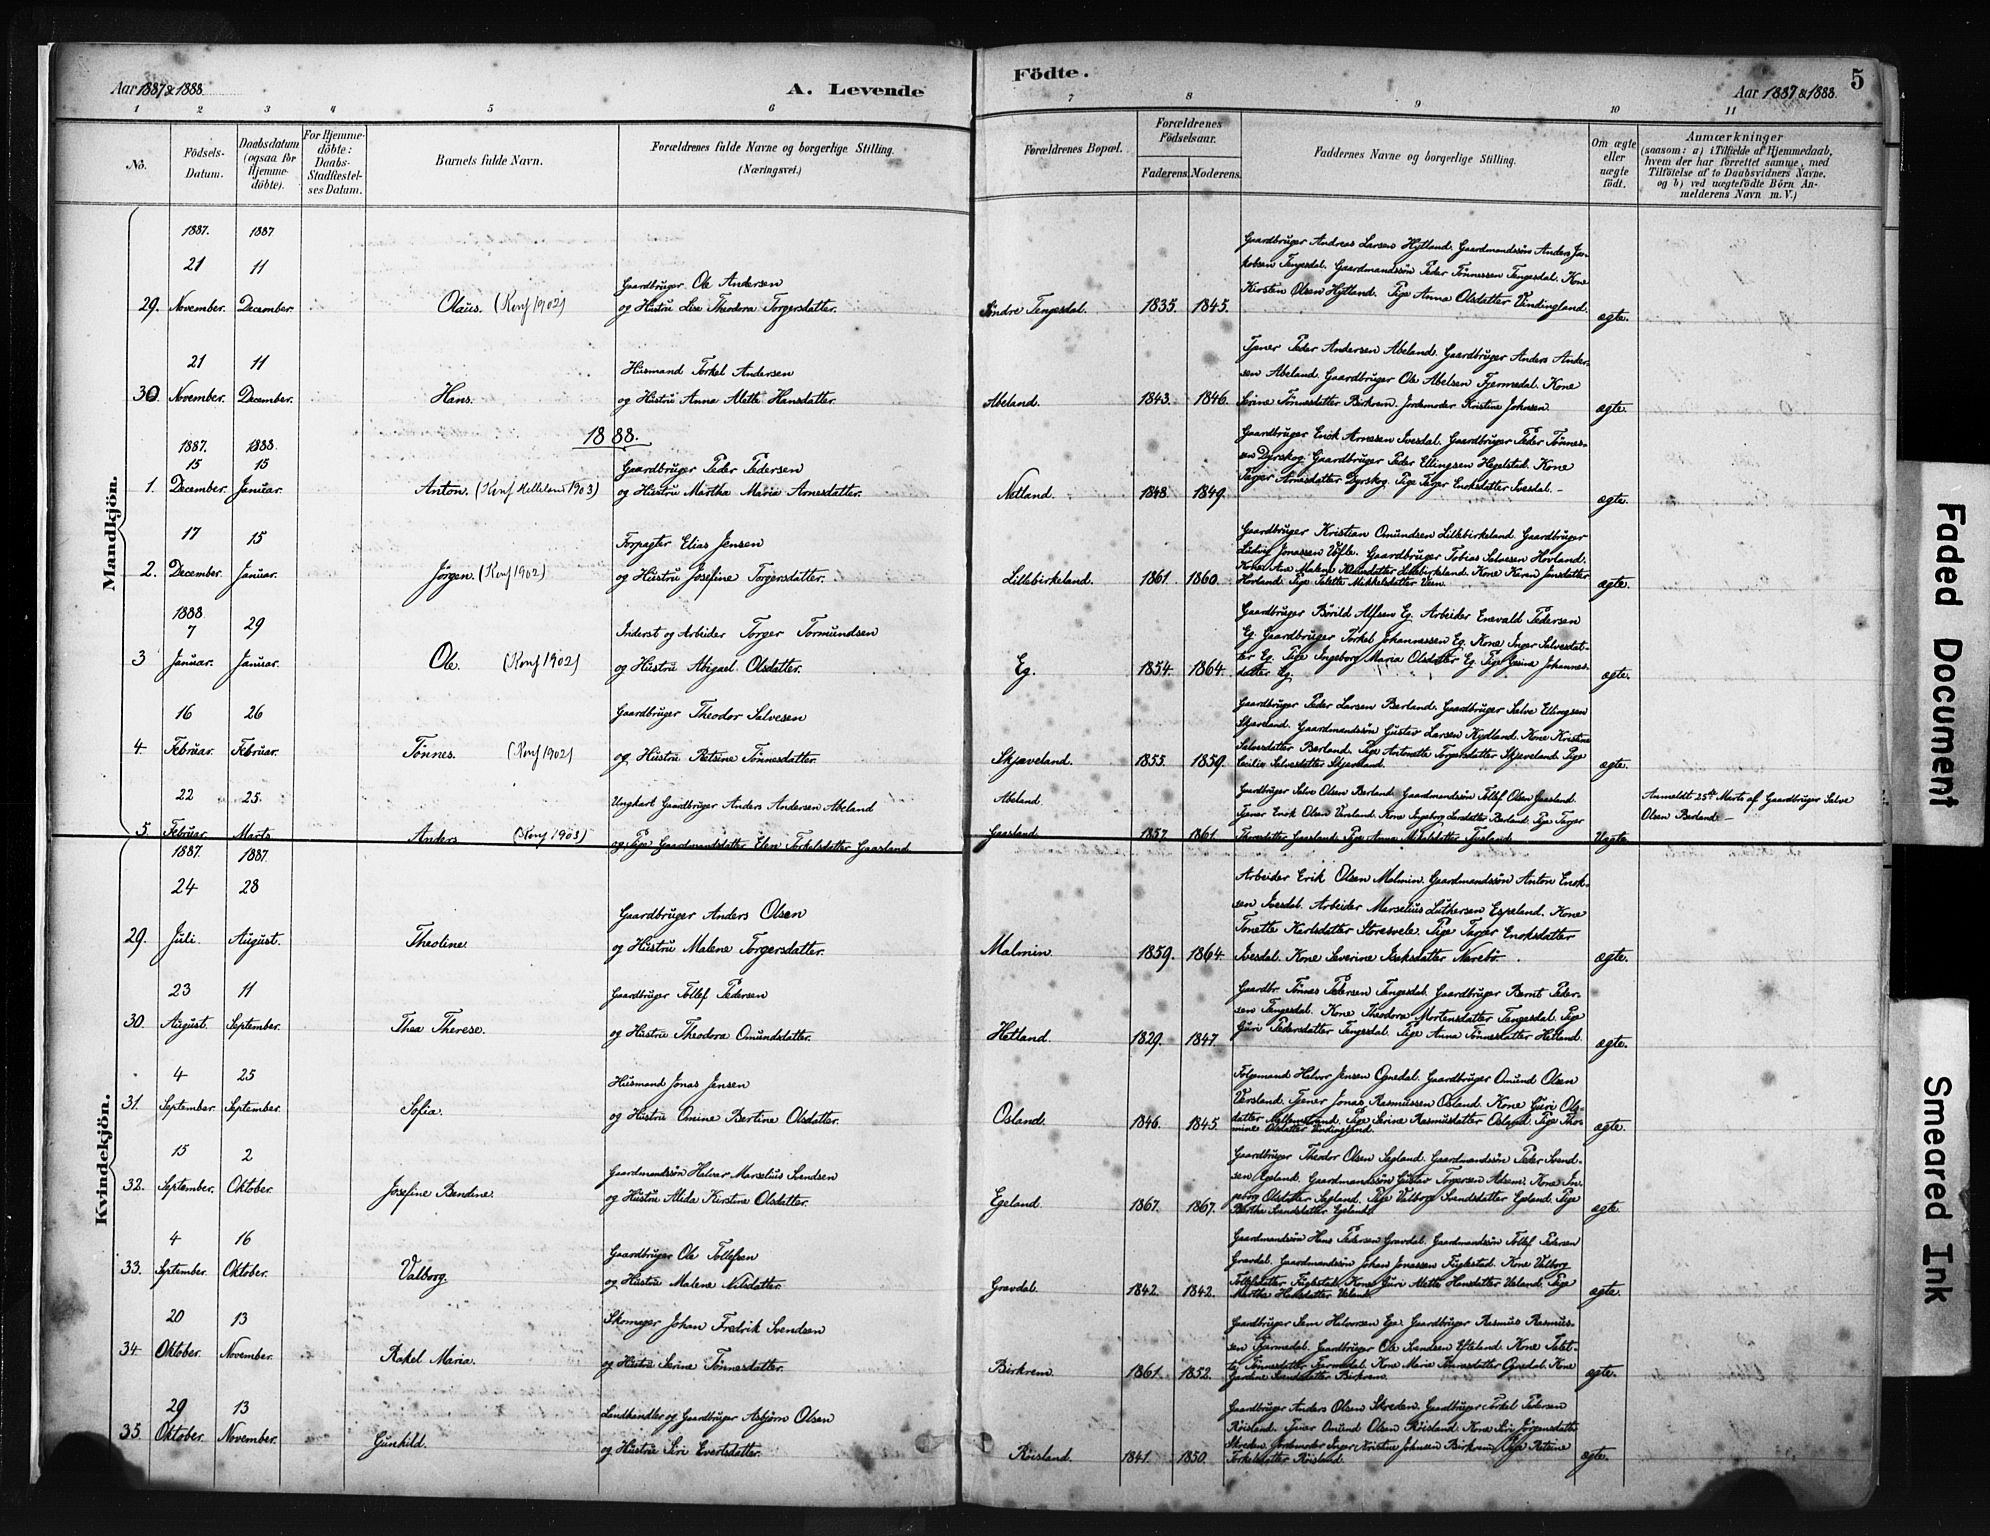 Aar 1887 & 1888.
A. Levende
Födte.
Aar 1887 & 1888.
5
1 2 3 4 5 6 7 8 9 10 11
No.
Födsels-Datum.
Daabsdatum (ogsaa for Hjemme-döbte).
For Hjemme-döbte: Daabs-Stadfestel-ses Datum.
Barnets fulde Navn.
Forældrenes fulde Navne og borgerlige Stilling.
(Næringsvei.)
Forældrenes Bopæl.
Forældrenes Födselsaar.
Faderens. Moderens.
Faddernes Navne og borgerlige Stilling.
Om ægte eller uægte födt.
Anmærkninger
(saasom: a) i Tilfælde af Hjemmedaab,
hvem der har forrettet samme, med
Tilföielse af to Daabsvidners Navne,
og b) ved uægtefödte Börn An-
melderens Navn m. V.)
Mandkjön.
1887. 1887
21 11
Gaardbruger Andreas Larsen Hytland. Gaardmandssön Anders Ja-
kobsen Tengesdal. Gaardmandssön Peder Tönnessen Tengesdal. Kone
Gaardbruger Ole Andersen
Kirsten Olsen Hytland. Pige Anna Olsdatter Vindingland.
29. November. December. Olaus. (Konf 1902) og Hustru Lise Theodora Torgersdatter. Söndre Tengesdal. 1835. 1845. ægte.
21 11
Tjener Peder Andersen Abeland. Gaardbruger Anders Ander-
Husmand Torkel Andersen
sen Abeland. Gaardbruger Ole Abelsen Tjermedal. Kone
30. November. December. Hans. og Hustru Anna Alette Hansdatter. Abeland. 1843. 1846. Serine Tönnesdatter Birkrem. Jordemoder Kristine Johnsen. ægte.
1888.
1887. 1888.
15 15
Gaardbruger Enok Arnesen Ivesdal. Gaardbruger Peder Tönnes-
Gaardbruger Peder Pedersen
sen Dyrskog. Gaardbruger Peder Ellingsen Hegelstad. Kone
1. December. Januar. Anton. (Konf Helleland 1903) og Hustru Martha Maria Arnesdatter. Netland. 1848. 1849. Arnesdatter Dyrskog. Pige Enoksdatter Ivesdal. ægte.
17 15
Gaardbruger Kristian Omundsen Lillebirkeland. Gaardbruger
Forpagter Elias Jensen
Ludvig Jonassen. Gaardbruger Tobias Salvesen Hovland.
2. December. Januar. Jörgen. (Konf 1902) og Hustru Josefine Torgersdatter. Lillebirkeland. 1861. 1860. ægte.
Kone Ana Malene Lillebirkeland. Kone Karen Jonsdatter
Hovland. Pige Mikkelsdatter
1888
7 29
Gaardbruger Börild Alfsen Eg. Arbeider Enevald Pedersen
Inderst og Arbeider Torger Tormundsen
Eg. Gaardbruger Torkel Johannessen Eg. Kone Inger Salvesdat-
ter Eg. Pige Ingeborg Maria Olsdatter Eg. Pige Johannes-
3 Januar. Januar. Ole. (Konf 1902) og Hustru Abigael Olsdatter. Eg. 1854. 1864. datter Eg. ægte.
16 26
Gaardbruger Peder Larsen Berland. Gaardbruger Salve Ellingsen
Gaardbruger Theodor Salvesen
Skjæveland. Gaardmandssön Gustav Larsen Hydland. Kone Kristine
Salvesdatter Berland. Pige Antonette Torgersdatter Skjæveland. Pige
4. Februar. Februar. Tönnes. (Konf 1902) og Hustru Retsine Tönnesdatter. Skjæveland. 1855. 1859. Cecilia Salvesdatter Skjæveland. ægte.
22 25.
Ungkarl Gaardbruger Anders Andersen Abeland Abeland
Gaardbruger Salve Olsen Berland. Gaardmandssön Tollef Olsen Gaasland.
Anmeldt 25de Marts af Gaardbruger Salve
Olsen Berland.
Tjener Enok Olsen Versland. Kone Ingeborg Larsdatter Berland. Pige
5. Februar. Marts Anders (Konf 1903) og Pige Gaardmandsdatter Elen Torkelsdatter Gaasland Gaasland 1857. 1861. Gaasland. Pige Anna Uægte
Kvindekjön.
1887. 1887.
24 28
Arbeider Erik Olsen Malmin. Gaardmandssön Anton Enok-
Gaardbruger Anders Olsen
sen Ivesdal. Arbeider Marselius Luthersen Espeland. Kone
Tonette Karlsdatter Storesvele. Pige Enoksdatter
29. Juli. August. Theoline. og Hustru Malene Torgersdatter. Malmin. 1859. 1864 Ivesdal. Kone Severine Isaksdatter Nærebö. ægte.
23 11
Gaardbr. Tönnes Pedersen Tengesdal. Gaardbruger Bernt Peder-
Gaardbruger Tollef Pedersen
sen Tengesdal. Kone Theodora Mortensdatter Tengesdal. Pige
30. August. September. Thea Therese. og Hustru Theodora Omundsdatter. Hetland. 1829. 1847. Guri Pedersdatter Tengesdal. Pige Anna Tönnesdatter Hetland. ægte.
4 25
Folgemand Halvor Jensen Ognedal. Gaardbruger Omund Olsen
Husmand Jonas Jensen
Versland. Tjener Jonas Rasmussen Osland. Kone Guri Ols-
31. September. September. Sofia. og Hustru Omine Bertine Olsdatter. Osland. 1846. 1845. ægte.
datter Mellemstrand. Pige Serine Rasmusdatter Osland. Pige Thor-
mine Olsdatter Vindingland.
15 2
Gaardbruger Theodor Olsen Segland. Gaardmandssön Peder Svend-
Gaardmandssön Halvor Marselius Svendsen
sen Egeland. Gaardmandssön Gustav Torgersen. Kone In-
32. September. Oktober. Josefine Bendine. og Hustru Alida Kirstine Olsdatter. Egeland. 1867. 1867. ægte.
geborg Olsdatter Segland. Pige Valborg Svendsdatter Egeland. Pige
Bertha Svendsdatter Egeland.
4 16
Gaardmandssön Hans Pedersen Gravdal. Gaardmandssön Tollef Pedersen
Gaardbruger Ole Tollefsen
Gravdal. Gaardmandssön Johan Jonassen Fuglestad. Kone Valborg
33. September. Oktober. Valborg. og Hustru Malene Nilsdatter. Gravdal. 1842. 1842. ægte.
Tollefsdatter Fuglestad. Kone Guri Alette Hansdatter Veland. Pige
Martha Hansdatter Veland.
20 13
Gaardbruger Sem Halvorsen Ege. Gaardbruger Rasmus Rasmus-
Skomager Johan Fredrik Svendsen
sen Tjermedal. Gaardbruger Ole Sandsen Efteland. Kone
34 Oktober. November. Rakel Maria. og Hustru Serine Tönnesdatter. Birkrem. 1861. 1852. ægte.
Tönnesdatter Tjermedal. Kone Maria Tönnesdatter Ognedal. Kone
Gardine Svendsdatter Birkrem.
29 13
Gaardbruger Anders Olsen Skreden. Gaardbruger Torkel Pedersen
Landhandler og Gaardbruger Asbjörn Olsen
Röisland. Tjener Omund Olsen Röisland. Kone Siri Jörgensdatter
Skreden. Jordemoder Inger Kristine Johnsen Birkrem. Pige Retsine
35. Oktober. November. Gunhild. og Hustru Siri Evertsdatter. Röisland. 1841. 1850. Torkelsdatter Röisland. ægte.
Faded Document
Smeared Ink